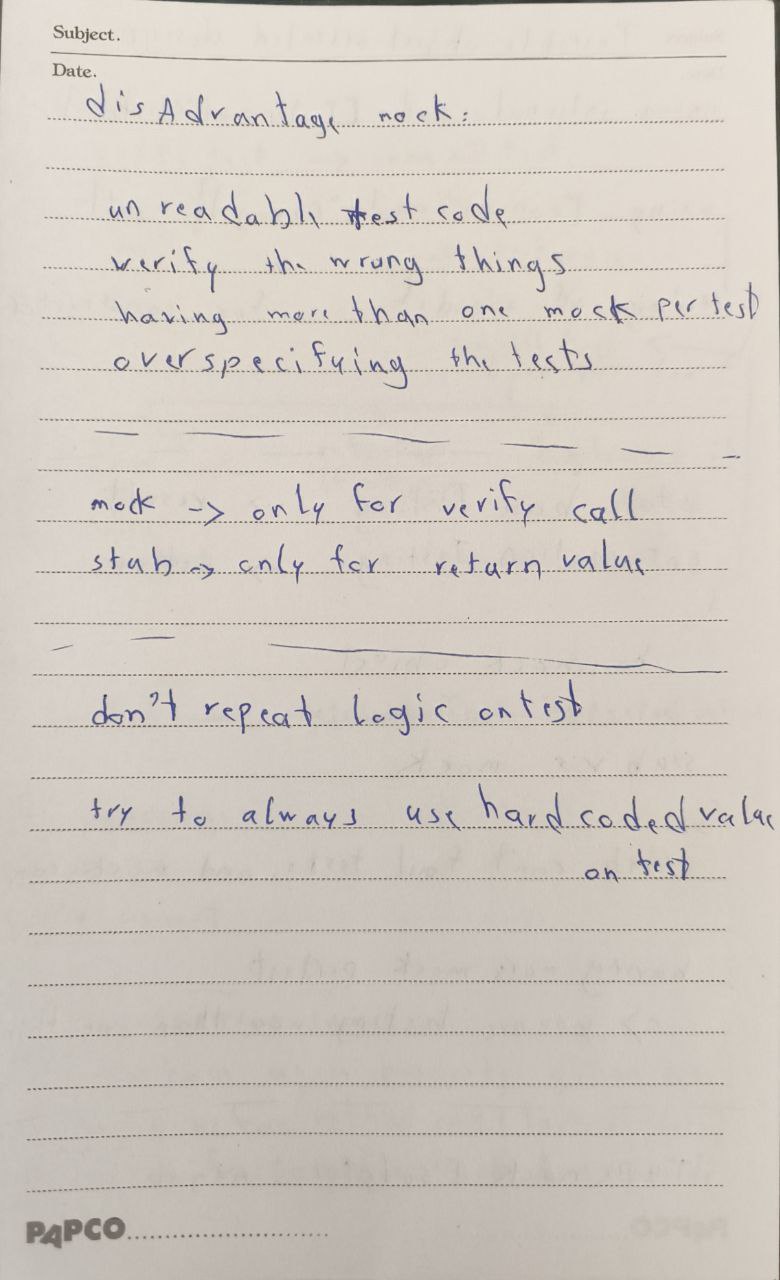 Subject.
Date.
disAdvantage mock:
un readable test code
verify the wrong things
having more than one mock per test
overspecifying the tests
mock -> only for verify call
stub -> only for return value
don't repeat logic on test
try to always use hard coded value
on test
PAPCO